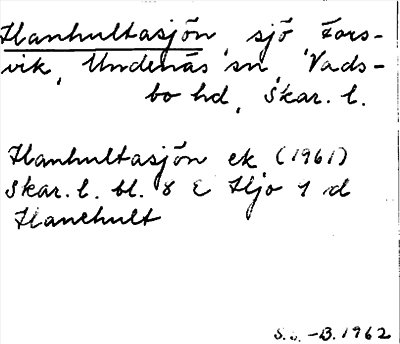 Hanhultasjön, sjö, Fors-
vik, Undenäs sn, Vads-
bo hd, Skar. l.
Hanhultasjön ek (1961)
Skar. l. bl. 8 E Hjo 9 d
Hanehult
S.S. -B. 1962